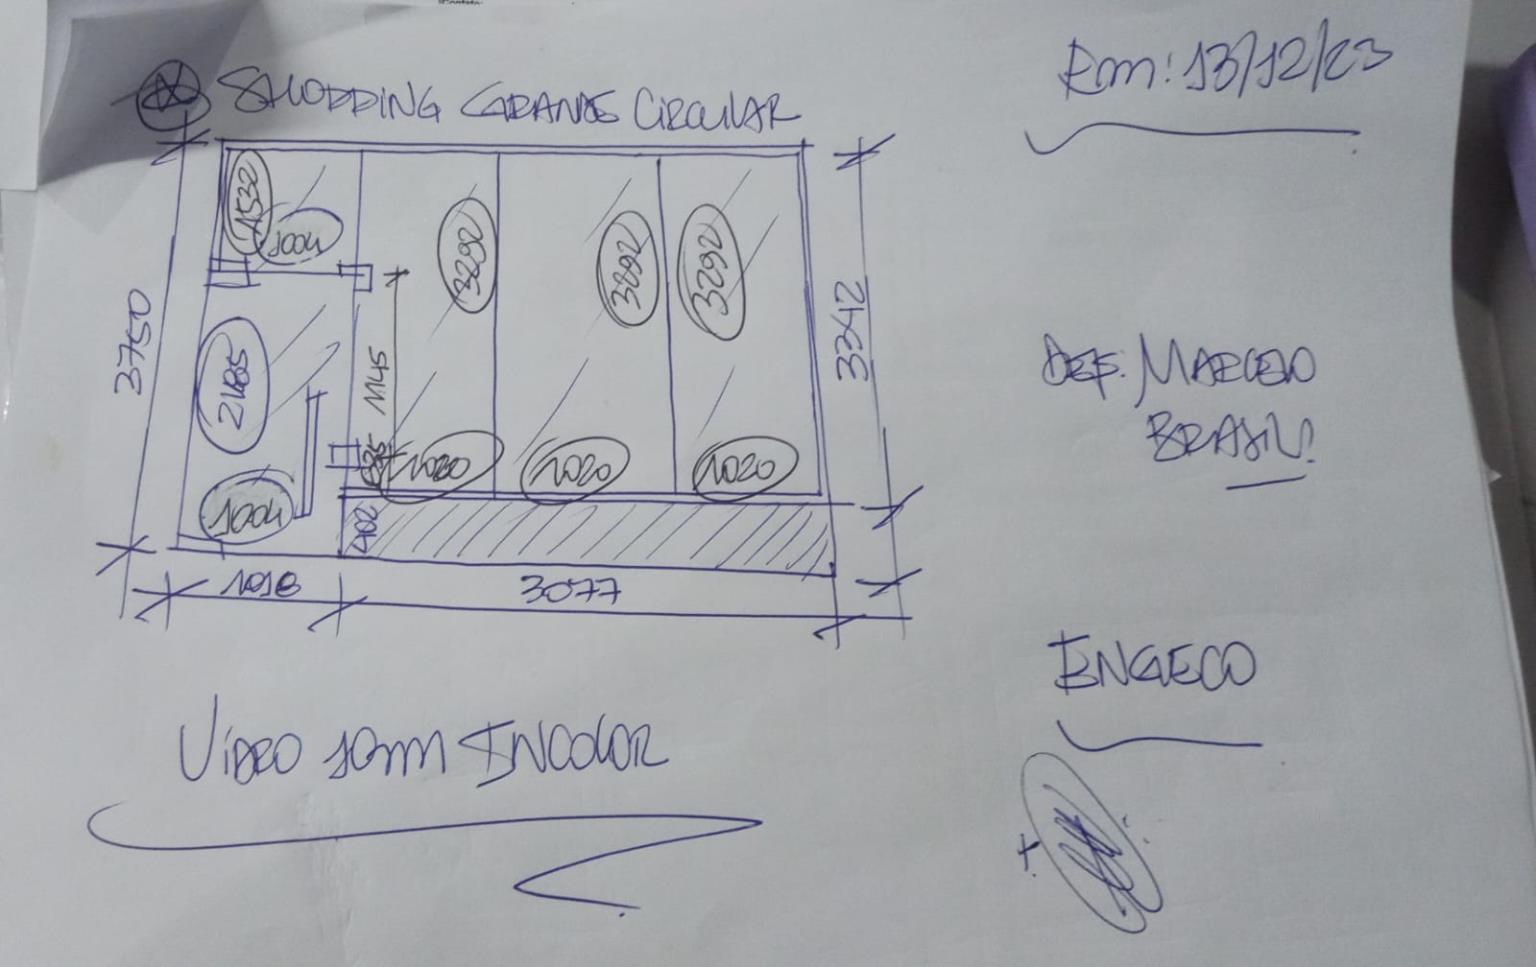 SHOPPING GRANDE CIRCULAR
Rm: 13/12/23
1532
1004
3292
3292
3292
3750
3342
2185
1145
1020
1020
1020
1004
402
1018
3077
REF: MARCELO
BRASIL
ENGECO
VIDRO 10mm INCOLOR